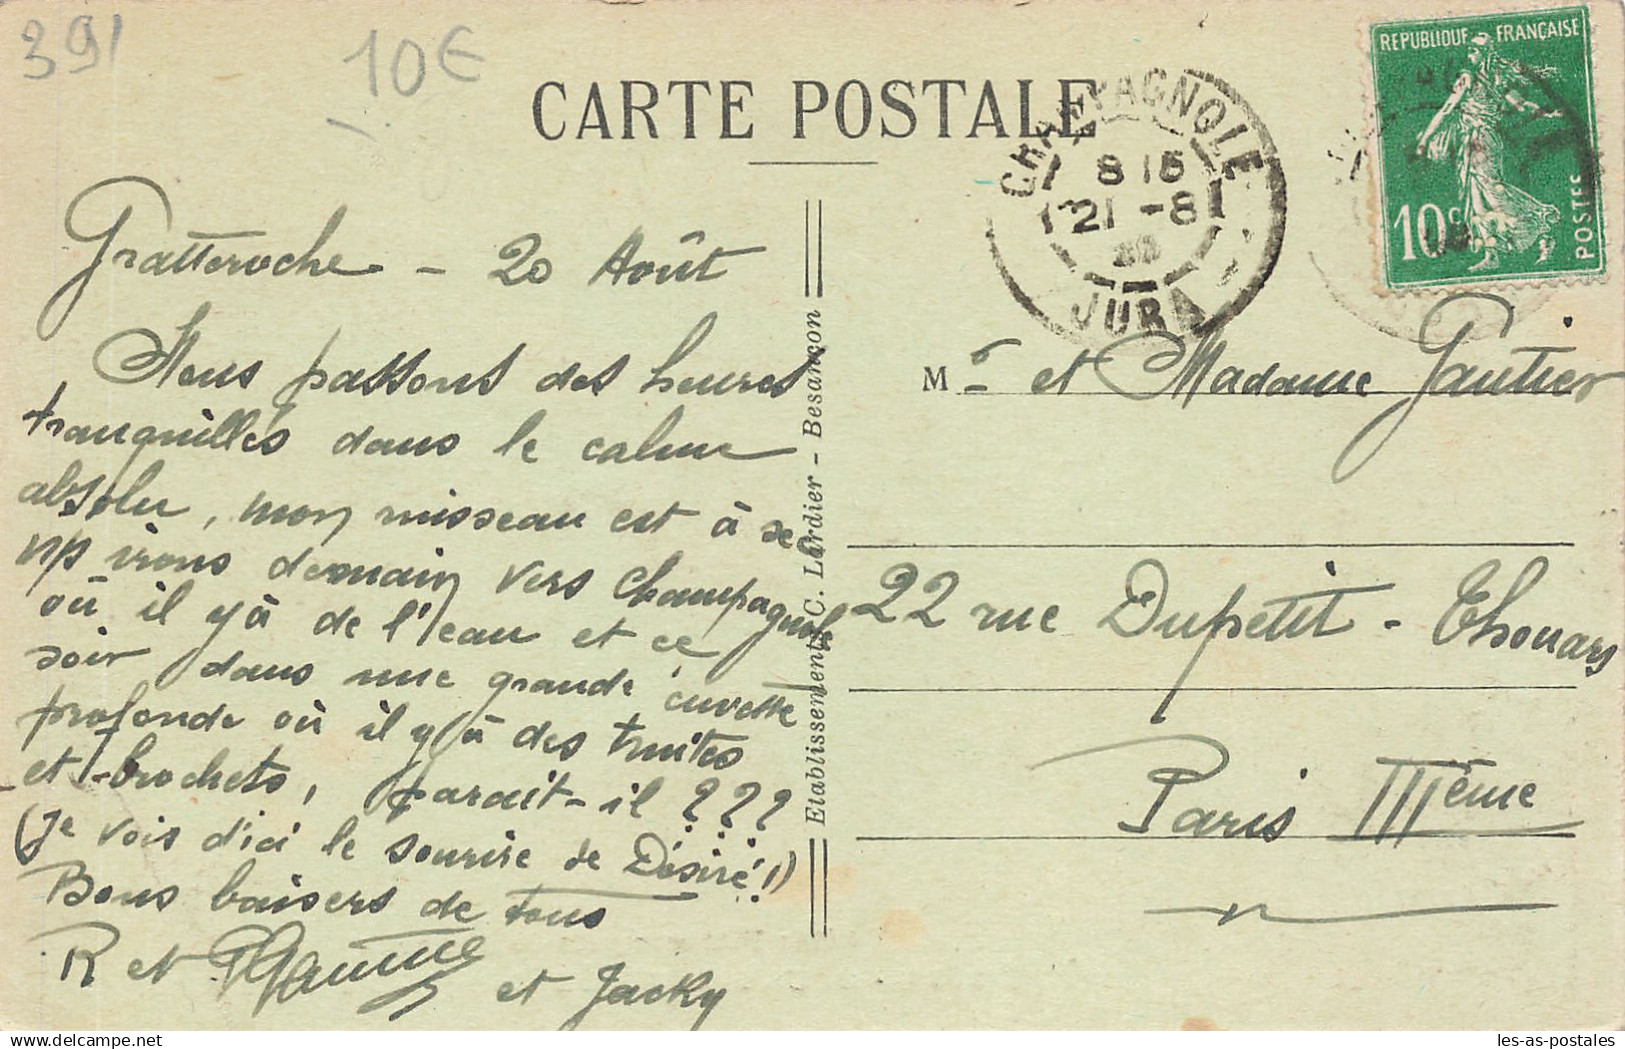 391
10€
CARTE POSTALE
CHAMPAGNOLE
8 15
21 -8
JURA
REPUBLIQUE FRANÇAISE
10c
POSTES
Gratteroche - 20 Août
Nous passons des heures
tranquilles dans le calme
absolu, mon ruisseau est à sec
ns irons demain vers Champagnole
où il y à de l'eau et ce
soir dans une grande cuvette
profonde où il y à des truites
et brochets, parait-il ???
(Je vois d'ici le sourire de Désiré!!)
Bons baisers de tous
R et et Jacky
Etablissements C. Lardier - Besançon
Mr et Madame Gautier
22 rue Dupetit-Thouars
Paris IIIème
les-as-postales
delcampe.net